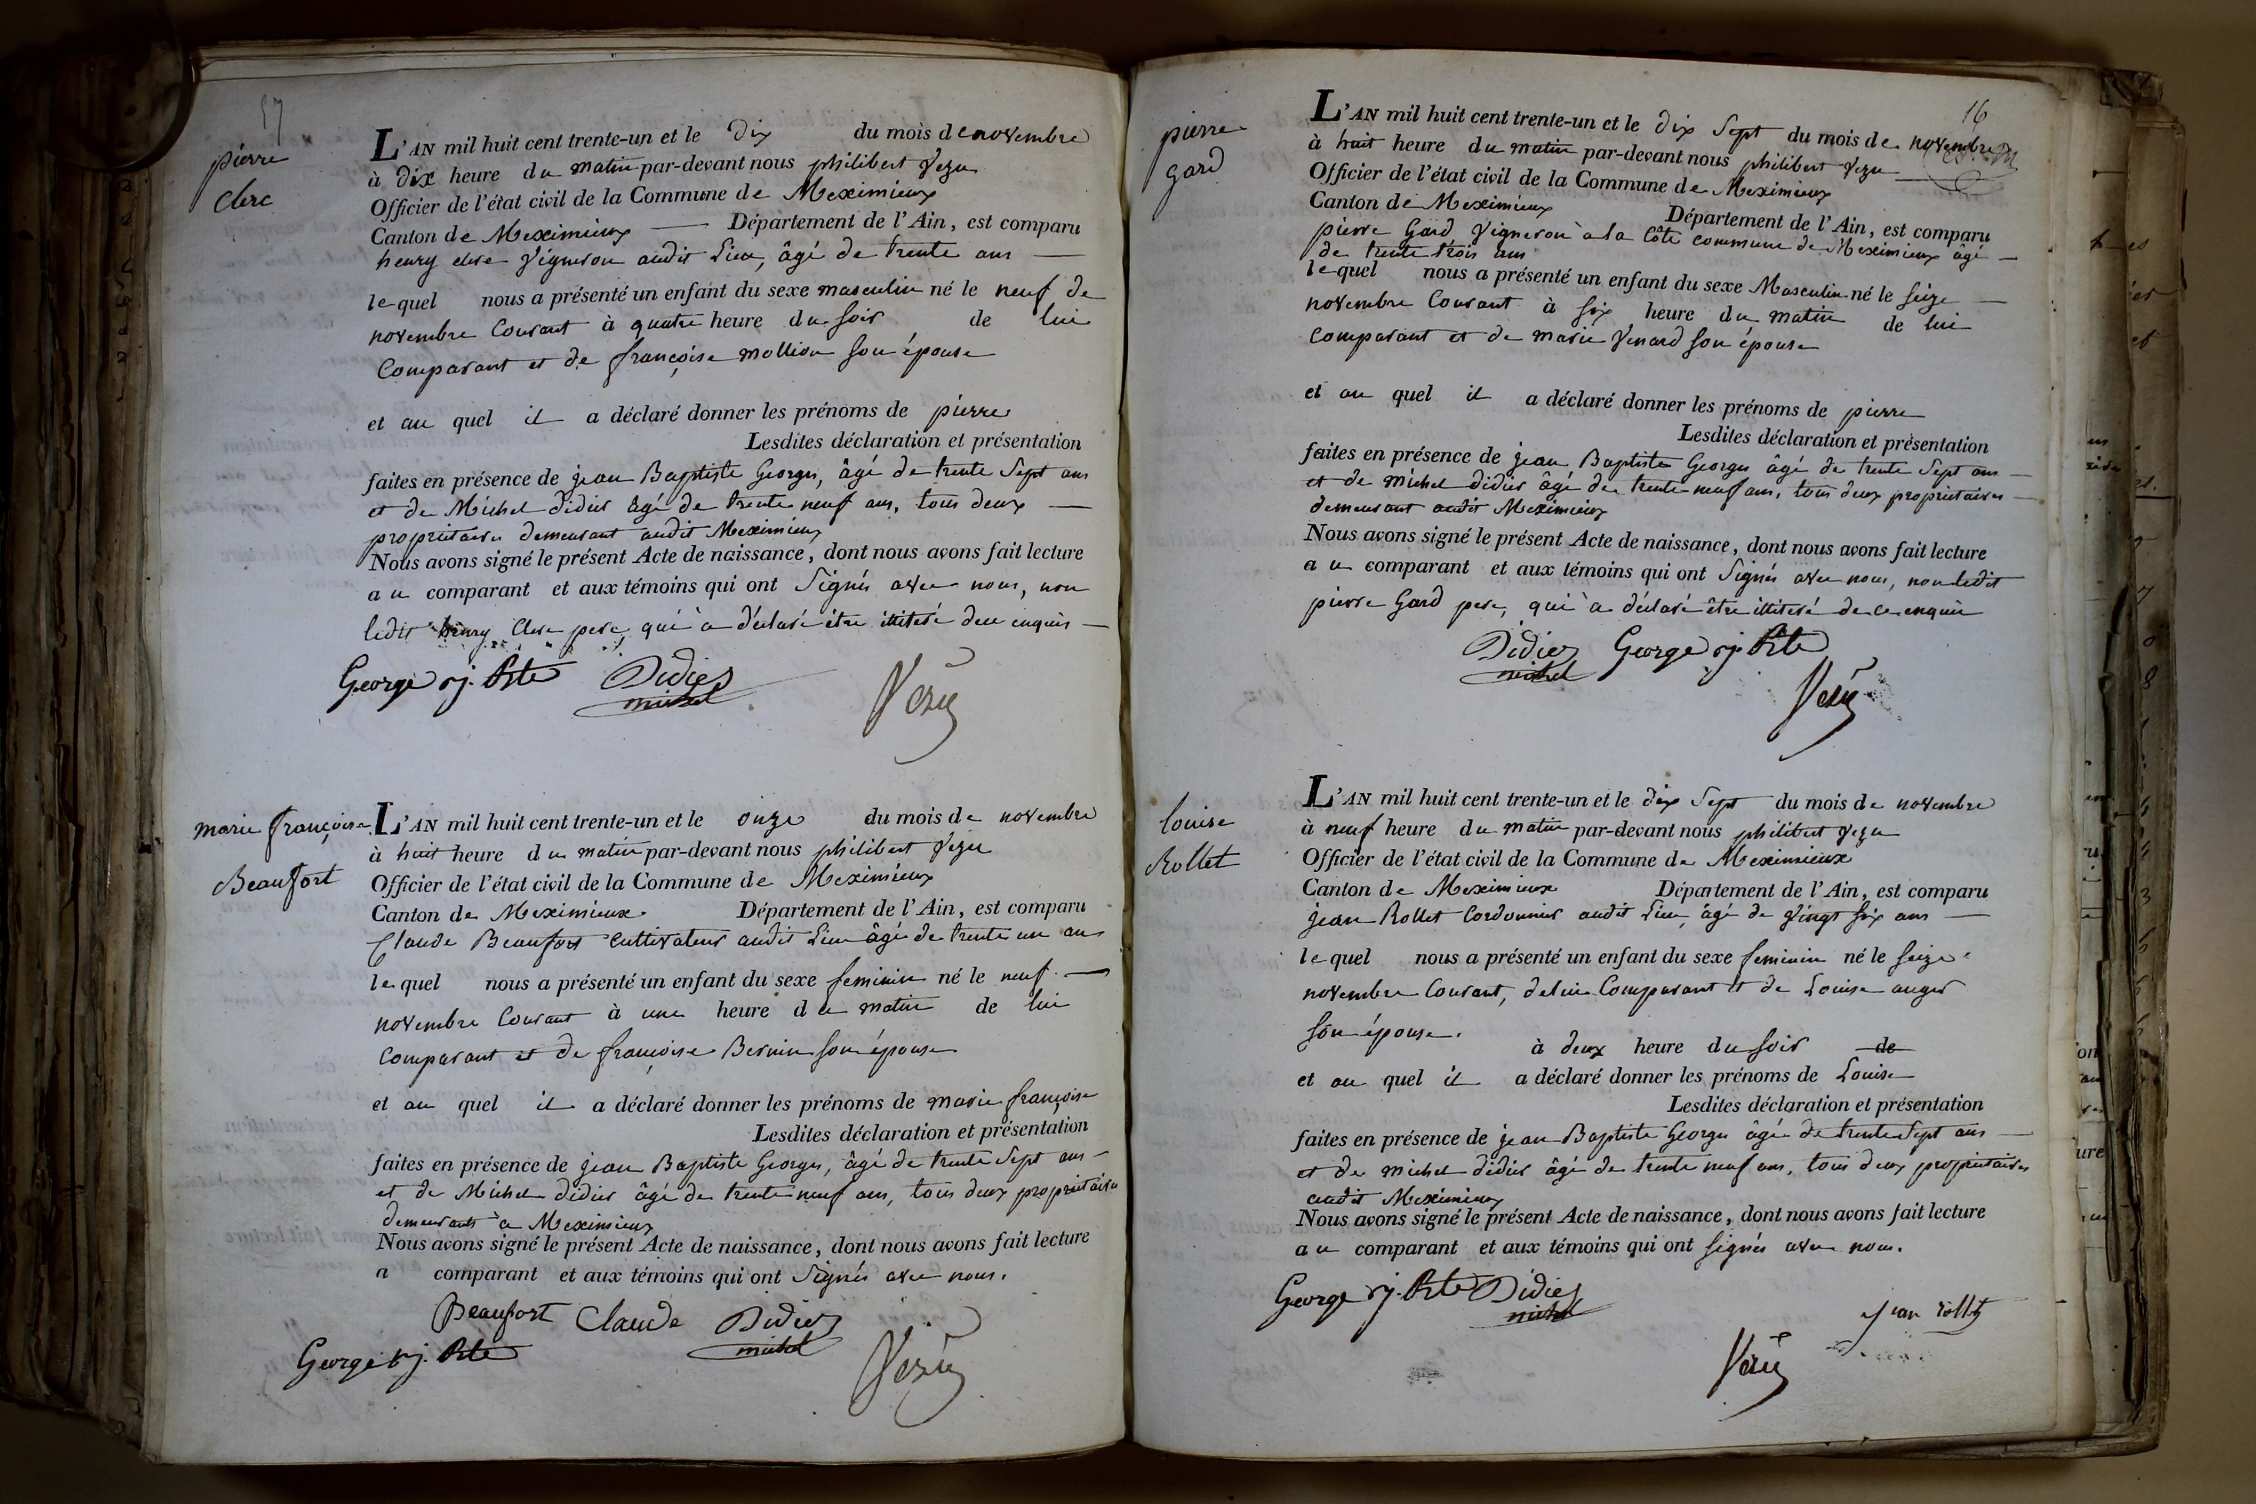 57
pierre
Clerc
L'AN mil huit cent trente-un et le Dix du mois de novembre
à dix heure du matin par-devant nous philibert Vezu
Officier de l'état civil de la Commune de Meximieux
Canton de Meximieux — Département de l'Ain, est comparu
henry clerc Vigneron audit Lieu, âgé de trente ans —
lequel nous a présenté un enfant du sexe masculin né le neuf de
novembre Courant à quatre heure du soir de lui
Comparant et de françoise mollion son épouse
et au quel il a déclaré donner les prénoms de pierre
Lesdites déclaration et présentation
faites en présence de jean Baptiste Georges, âgé de trente Sept ans
et de Michel didier âgé de trente neuf ans, tous deux —
propriétaires demeurant audit Meximieux
Nous avons signé le présent Acte de naissance, dont nous avons fait lecture
au comparant et aux témoins qui ont Signés avec nous, non
ledit henry Clerc pere, qui a déclaré être illitéré de ce enquis —
George j. Bte Didier michel Vezu
marie françoise
Beaufort
L'AN mil huit cent trente-un et le onze du mois de novembre
à huit heure du matin par-devant nous philibert Vezu
Officier de l'état civil de la Commune de Meximieux
Canton de Meximieux Département de l'Ain, est comparu
Claude Beaufort Cultivateur audit Lieu âgé de trente un ans
lequel nous a présenté un enfant du sexe feminin né le neuf —
novembre Courant à une heure du matin de lui
Comparant et de françoise Bernin son épouse
et au quel il a déclaré donner les prénoms de marie françoise
Lesdites déclaration et présentation
faites en présence de jean Baptiste Georges, âgé de trente Sept ans —
et de Michel didier âgé de trente neuf ans, tous deux propriétaires
demeurants à Meximieux
Nous avons signé le présent Acte de naissance, dont nous avons fait lecture
a comparant et aux témoins qui ont Signés avec nous.
Beaufort Claude Didier michel
George j. Bte Vezu
16
pierre
gard
L'AN mil huit cent trente-un et le dix Sept du mois de novembre
à huit heure du matin par-devant nous philibert Vezu
Officier de l'état civil de la Commune de Meximieux
Canton de Meximieux Département de l'Ain, est comparu
pierre Gard Vigneron à la Côte commune de Meximieux âgé —
de trente trois ans
lequel nous a présenté un enfant du sexe Masculin né le Seize —
novembre Courant à six heure du matin de lui
Comparant et de marie Venard son épouse
et au quel il a déclaré donner les prénoms de pierre
Lesdites déclaration et présentation
faites en présence de jean Baptiste Georges âgé de trente Sept ans —
et de michel didier âgé de trente neuf ans, tous deux propriétaires —
demeurant audit Meximieux
Nous avons signé le présent Acte de naissance, dont nous avons fait lecture
au comparant et aux témoins qui ont Signés avec nous, non ledit
pierre Gard pere, qui a déclaré être illitéré de ce enquis
Didier michel George j. Bte
Vezu
louise
Rollet
L'AN mil huit cent trente-un et le dix Sept du mois de novembre
à neuf heure du matin par-devant nous philibert Vezu
Officier de l'état civil de la Commune de Meximieux
Canton de Meximieux Département de l'Ain, est comparu
jean Rollet Cordonnier audit Lieu, âgé de Vingt six ans —
lequel nous a présenté un enfant du sexe feminin né le Seize
novembre Courant, de lui Comparant et de Louise auger
son épouse. à deux heure du soir de
et au quel il a déclaré donner les prénoms de Louise
Lesdites déclaration et présentation
faites en présence de jean Baptiste Georges âgé de trente Sept ans —
et de michel didier âgé de trente neuf ans, tous deux propriétaires
audit Meximieux
Nous avons signé le présent Acte de naissance, dont nous avons fait lecture
au comparant et aux témoins qui ont signés avec nous.
George j. Bte Didier michel
jean rollet
Vezu